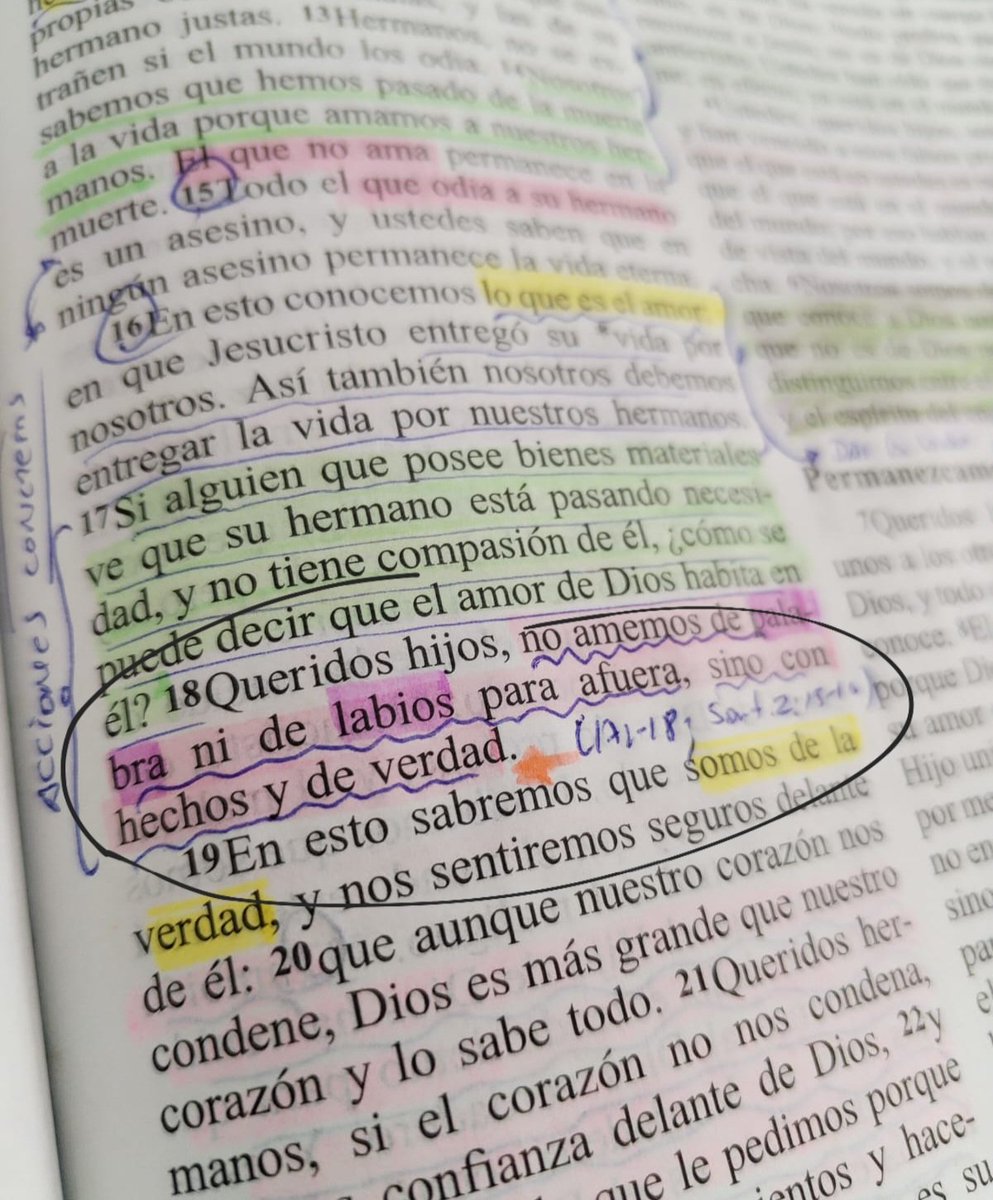 propias
hermano justas. 13Hermanos, no se ex-
trañen si el mundo los odia. 14Nosotros
sabemos que hemos pasado de la muerte
a la vida porque amamos a nuestros her-
manos. El que no ama permanece en la
muerte. 15Todo el que odia a su hermano
es un asesino, y ustedes saben que en
ningún asesino permanece la vida eterna.
16En esto conocemos lo que es el amor:
en que Jesucristo entregó su *vida por
nosotros. Así también nosotros debemos
entregar la vida por nuestros hermanos.
17Si alguien que posee bienes materiales
ve que su hermano está pasando necesi-
dad, y no tiene compasión de él, ¿cómo se
puede decir que el amor de Dios habita en
él? 18Queridos hijos, no amemos de pala-
bra ni de labios para afuera, sino con
hechos y de verdad. (17-18; Sant. 2:15-16)
19En esto sabremos que somos de la
verdad, y nos sentiremos seguros delante
de él: 20que aunque nuestro corazón nos
condene, Dios es más grande que nuestro
corazón y lo sabe todo. 21Queridos her-
manos, si el corazón no nos condena,
confianza delante de Dios, 22y
que le pedimos porque
entos y hace-
es su
Acciones
que conoce a Dios
que no es de Dios
distinguimos entre el
y el espíritu del
Permanezcam
7Queridos
unos a los otr
Dios, y todo
conoce. 8El
porque Di
su amor
Hijo uni
por me
no en
sino
pa
el